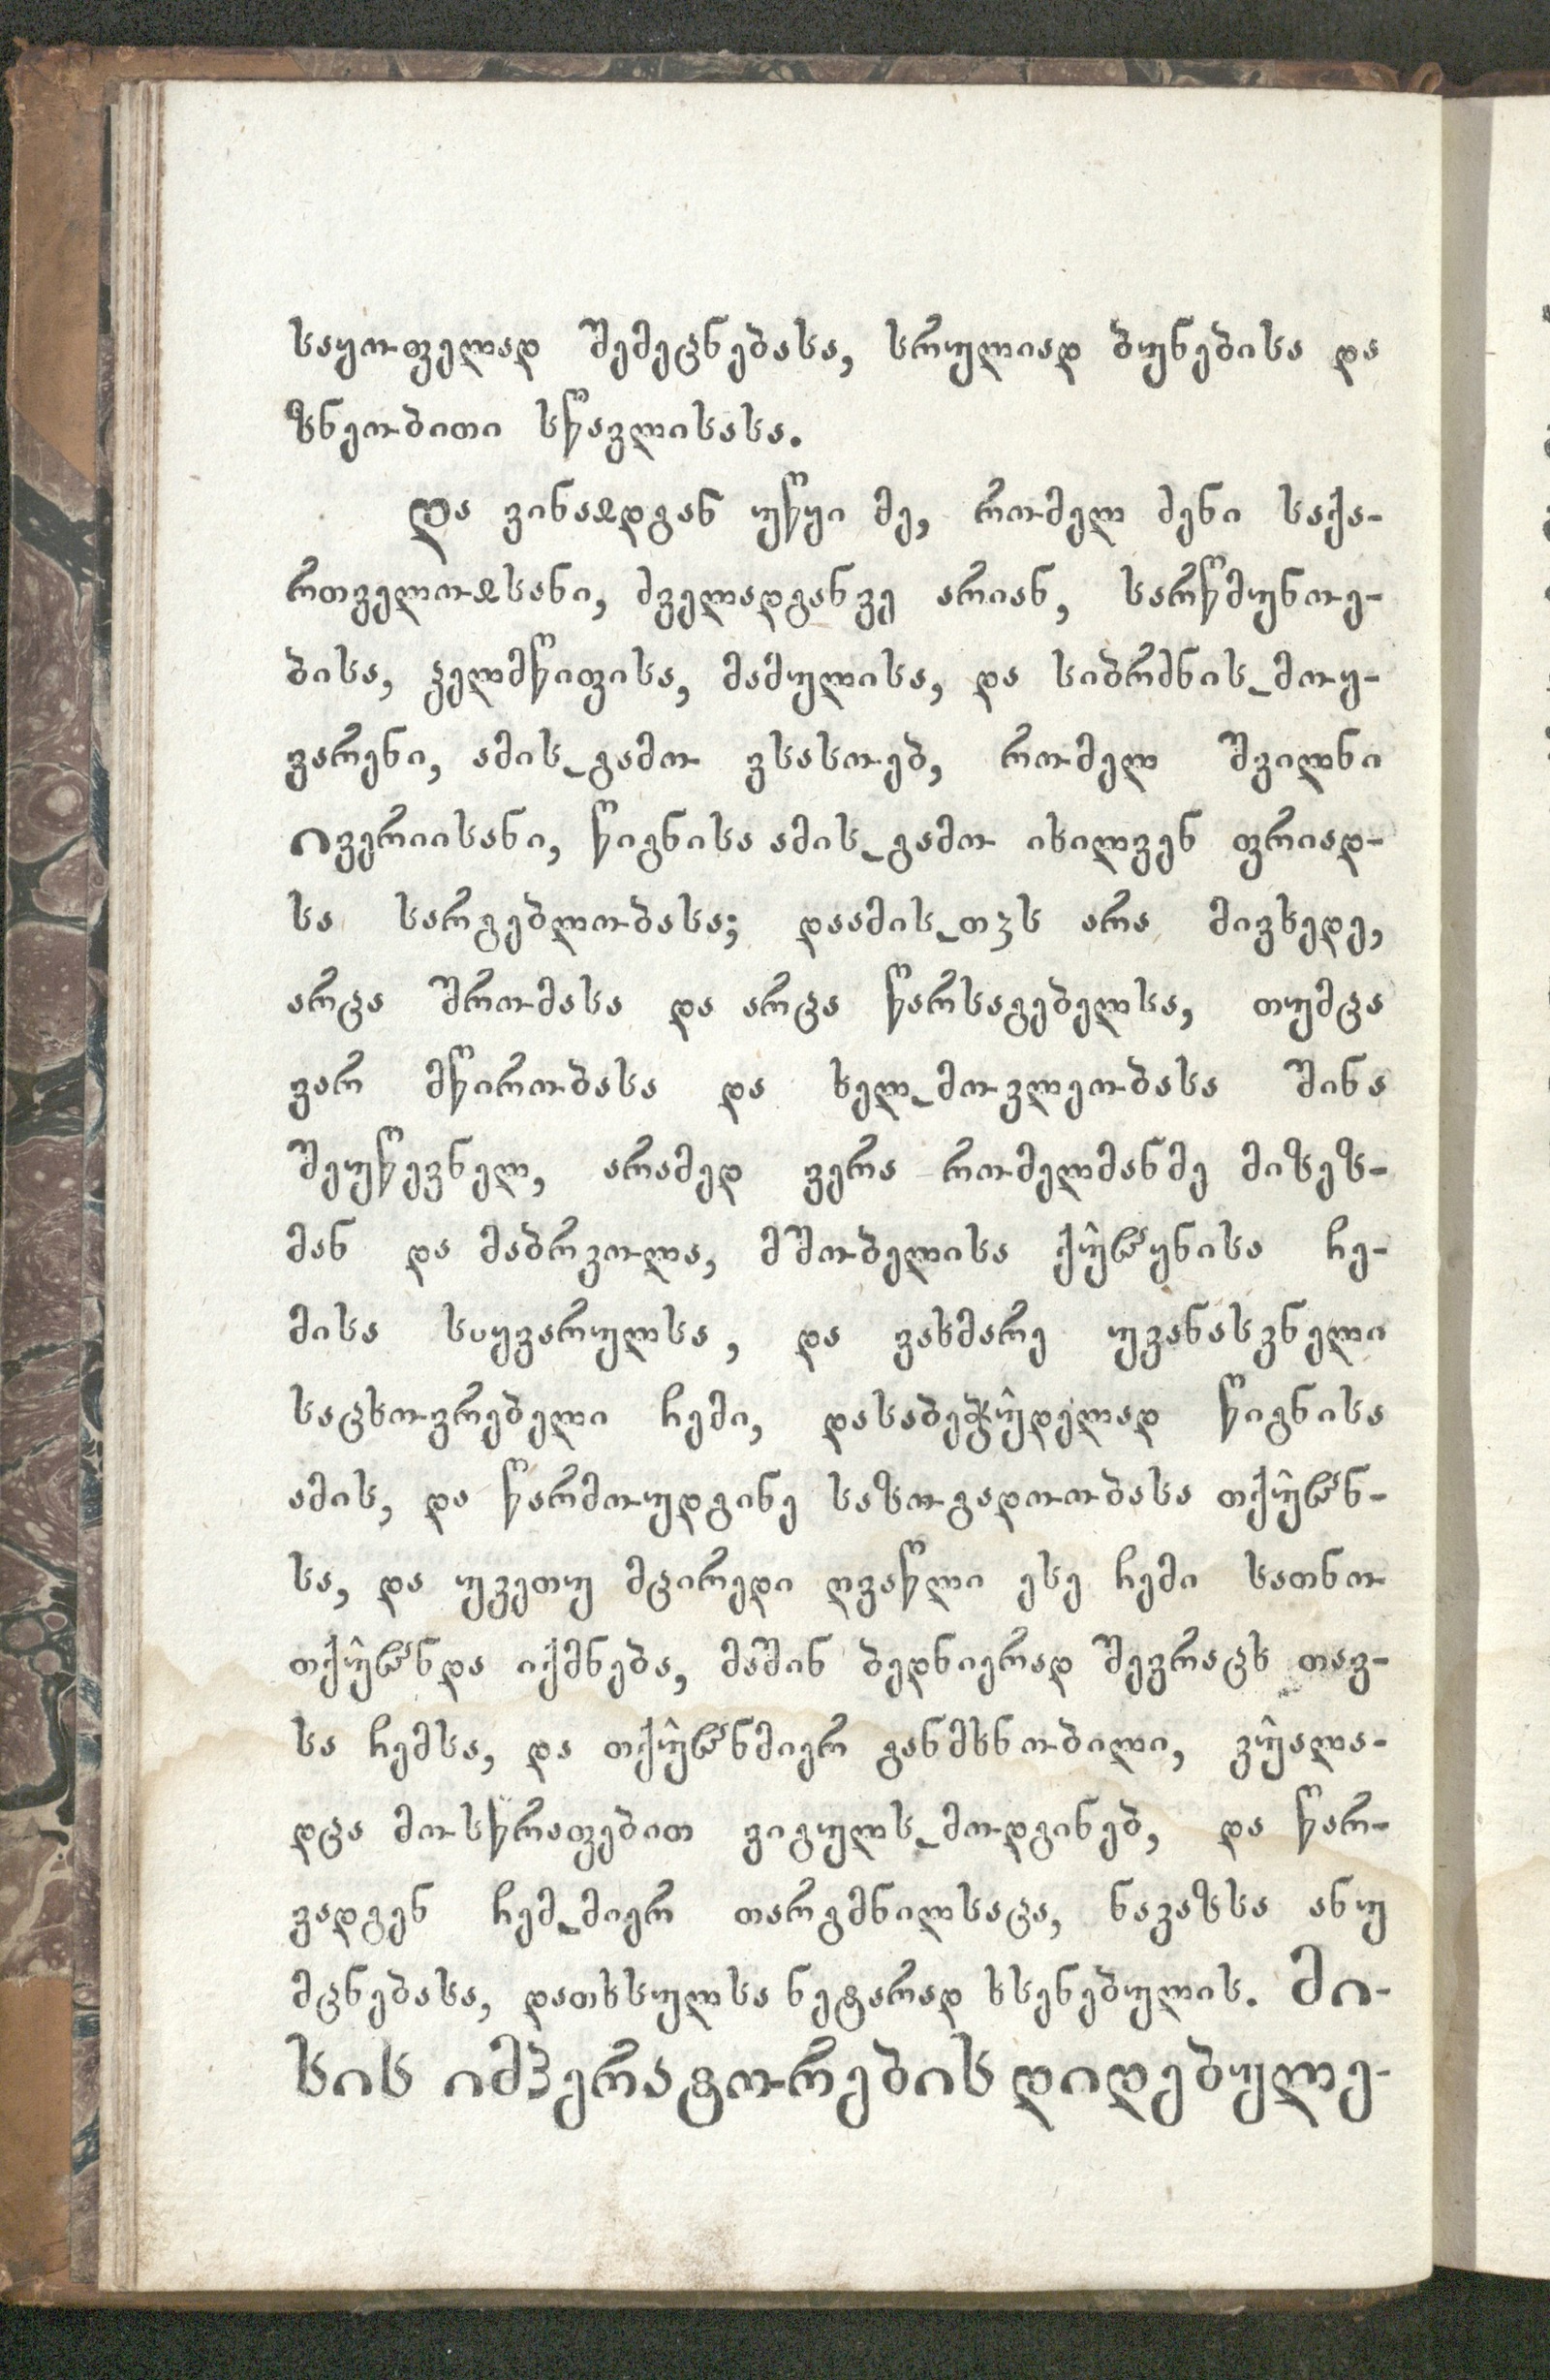 საყოფელად შემეცნებასა, სრულიად ბუნებისა და
ზნეობითი სწავლისასა.
და ვინაჲდგან უწყი მე, რომელ ძენი საქა-
რთველოჲსანი, ძველადგანვე არიან, სარწმუნოე-
ბისა, ჴელმწიფისა, მამულისა, და სიბრძნის მოყ-
ვარენი, ამის გამო ვსასოებ, რომელ შვილნი
ივერიისანი, წიგნისა ამის გამო იხილვენ ფრიად-
სა სარგებლობასა; დაამის თჳს არა მივხედე,
არცა შრომასა და არცა წარსაგებელსა, თუმცა
ვარ მწირობასა და ხელ მოვლეობასა შინა
შეუწევნელ, არამედ ვერა რომელმანმე მიზეზ-
მან და მაბრკოლა, მშობელისა ქუ̂ჱყნისა ჩე-
მისა სიყვარულსა, და ვახმარე უკანასკნელი
საცხოვრებელი ჩემი, დასაბეჭუ̂დელად წიგნისა
ამის, და წარმოუდგინე საზოგადოობასა თქუ̂ჱნ-
სა, და უკეთუ მცირედი ღვაწლი ესე ჩემი სათნო
თქუ̂ჱნდა იქმნება, მაშინ ბედნიერად შევრაცხ თავ-
სა ჩემსა, და თქუ̂ჱნმიერ განმხნობილი, კუ̂ალა-
დცა მოსწრაფებით ვიგულს მოდგინებ, და წარ-
ვადგენ ჩემ მიერ თარგმნილსაცა, ნაკაზსა ანუ
მცნებასა, დათხსულსა ნეტარად ხსენებულის. მი-
სის იმპერატორების დიდებულე-